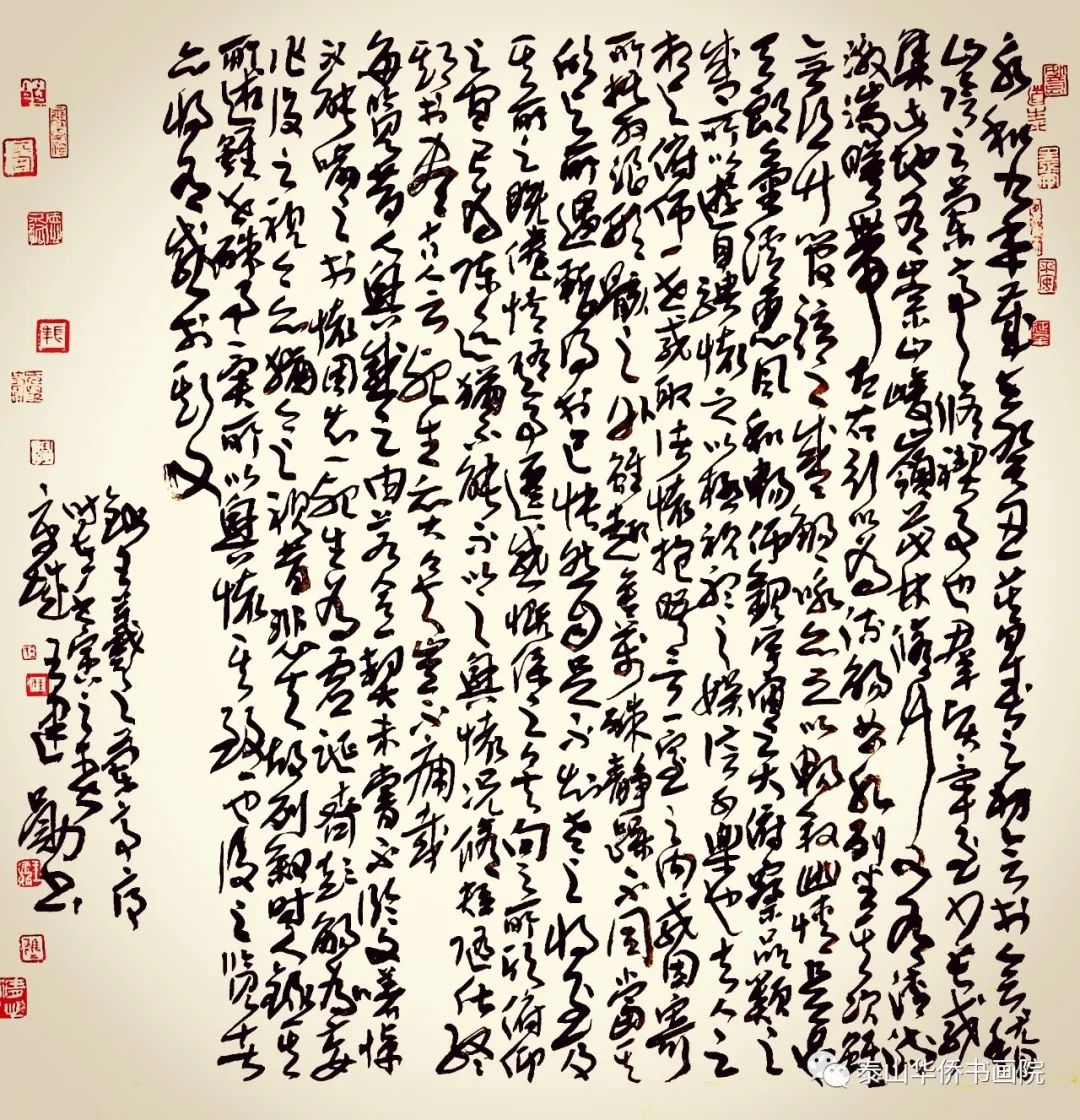 永和九年歲在癸丑暮春之初會于會稽
山陰之蘭亭修禊事也群賢畢至少長咸
集此地有崇山峻嶺茂林修竹又有清流
激湍映帶左右引以為流觴曲水列坐其次雖
無絲竹管弦之盛一觴一詠亦足以暢敘幽情是日
天朗氣清惠風和暢仰觀宇宙之大俯察品類之
盛所以遊目騁懷足以極視聽之娛信可樂也夫人之
相與俯仰一世或取諸懷抱晤言一室之內或因寄
所託放浪形骸之外雖趣舍萬殊靜躁不同當其
欣於所遇暫得於己快然自足不知老之將至及
其所之既倦情隨事遷感慨係之矣向之所欣俯仰
之間已為陳迹猶不能不以之興懷況修短隨化終
期於盡古人云死生亦大矣豈不痛哉
每覽昔人興感之由若合一契未嘗不臨文嗟悼
不能喻之於懷固知一死生為虛誕齊彭殤為妄
作後之視今亦猶今之視昔悲夫故列敘時人錄其
所述雖世殊事異所以興懷其致一也後之覽者
亦將有感於斯文
錄王羲之蘭亭序
時在
王建勳書
泰山华侨书画院